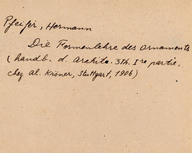 Pfeifer, Hermann
Die Formenlehre des Ornaments
(handb. d. Archite. 3th. Iro partie
chez Al. Kröner, Stuttgart, 1906)